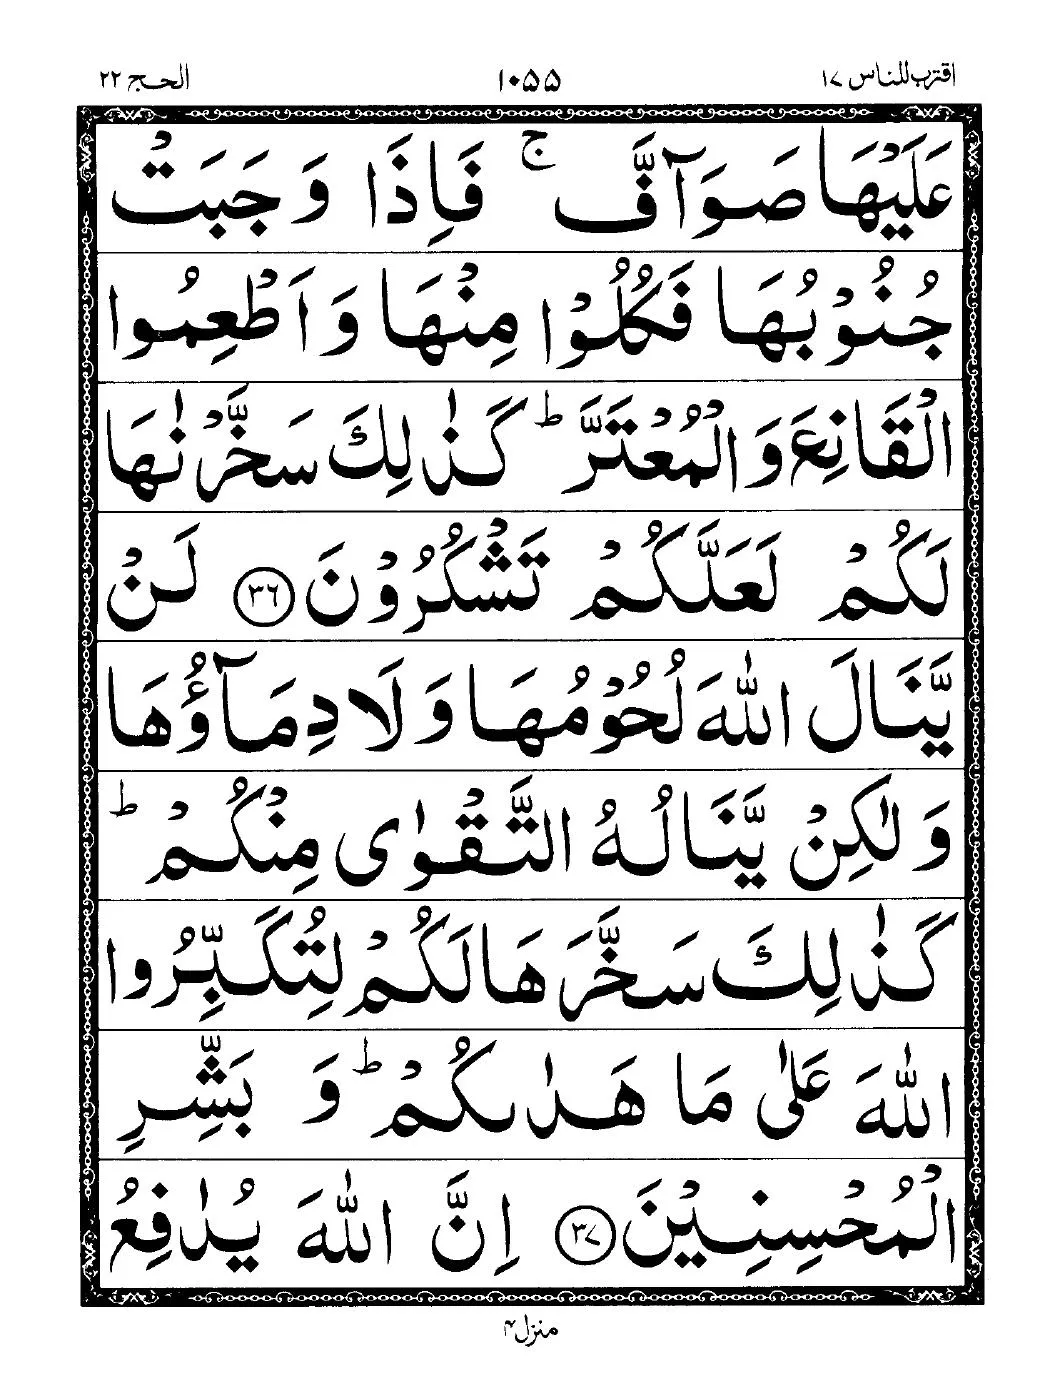 اقترب للناس ١٧ ١٠٥٥ الحج ٢٢
عَلَيْهَا صَوَآفَّ ۚ فَاِذَا وَجَبَتْ
جُنُوْبُهَا فَكُلُوْا مِنْهَا وَاَطْعِمُوا
الْقَانِعَ وَالْمُعْتَرَّ ؕ كَذٰلِكَ سَخَّرْنٰهَا
لَكُمْ لَعَلَّكُمْ تَشْكُرُوْنَ ۝٣٦ لَنْ
يَّنَالَ اللّٰهَ لُحُوْمُهَا وَلَا دِمَآؤُهَا
وَلٰكِنْ يَّنَالُهُ التَّقْوٰى مِنْكُمْ ؕ
كَذٰلِكَ سَخَّرَهَا لَكُمْ لِتُكَبِّرُوا
اللّٰهَ عَلٰى مَا هَدٰىكُمْ ؕ وَبَشِّرِ
الْمُحْسِنِيْنَ ۝٣٧ اِنَّ اللّٰهَ يُدٰفِعُ
منزل ۴